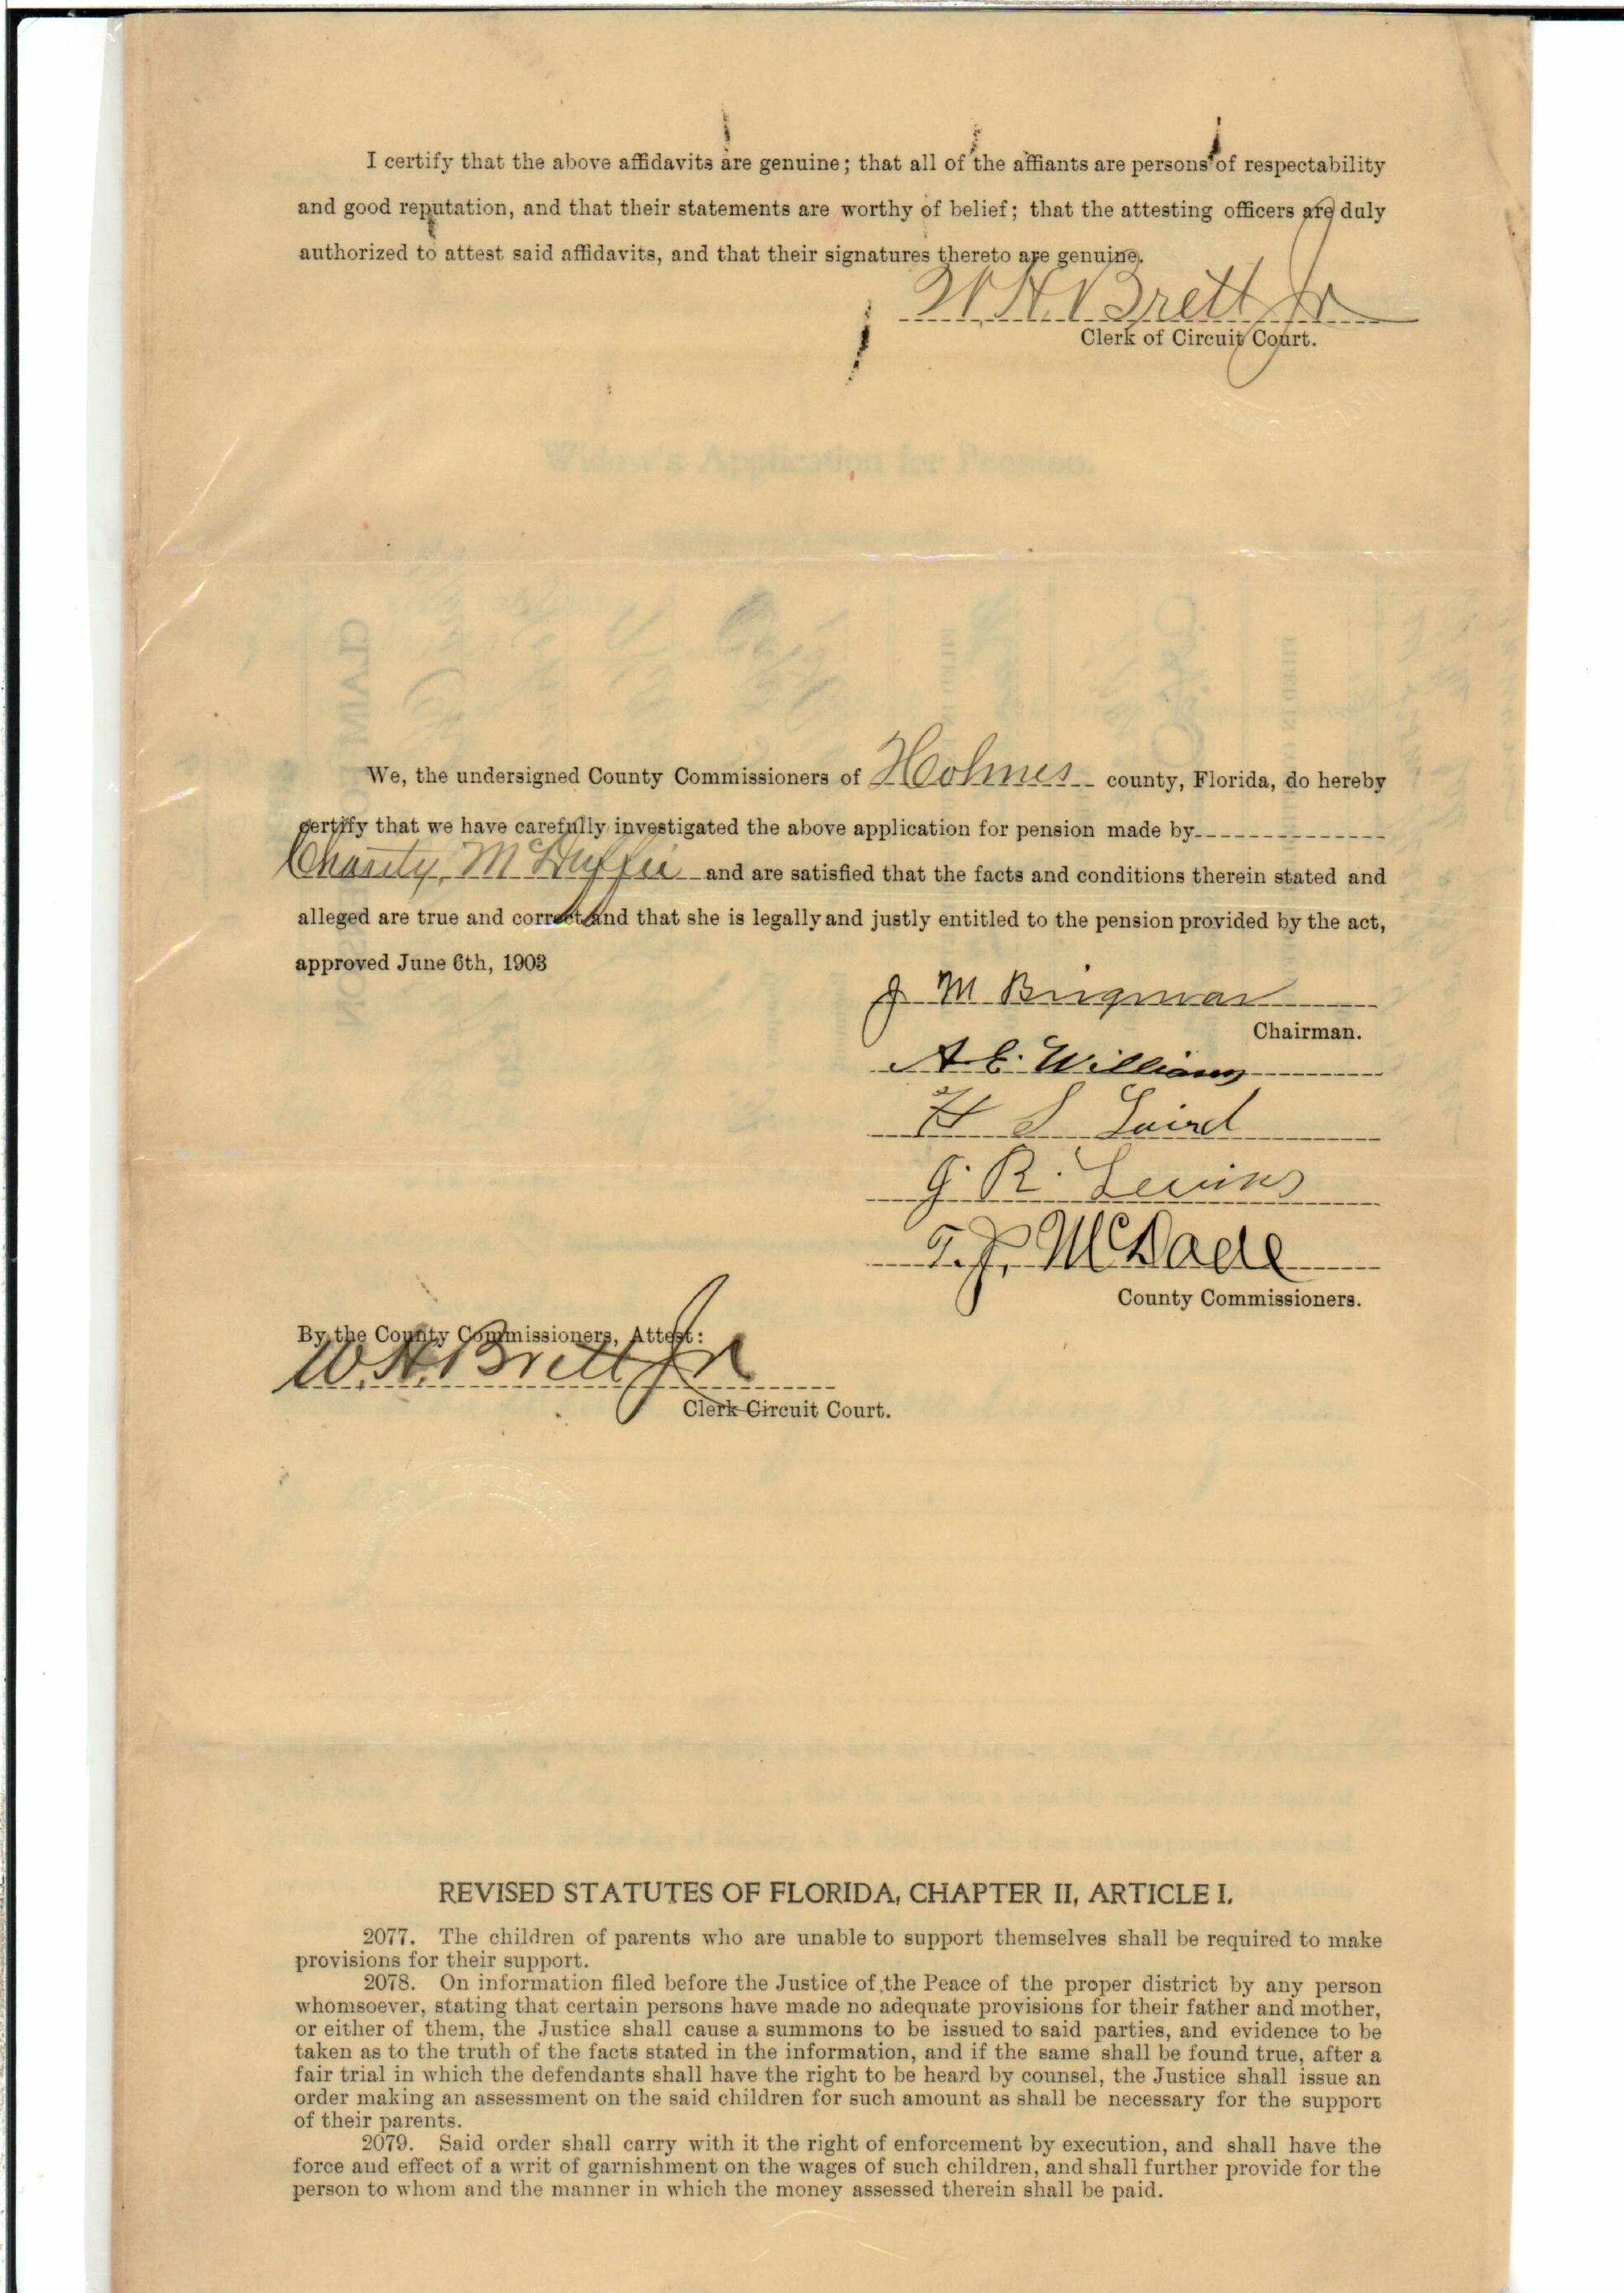 I certify that the above affidavits are genuine; that all of the affiants are persons of respectability
and good reputation, and that their statements are worthy of belief; that the attesting officers are duly
authorized to attest said affidavits, and that their signatures thereto are genuine.
W. H. Brett Jr
Clerk of Circuit Court.
Widow's Application for Pension.
We, the undersigned County Commissioners of Holmes county, Florida, do hereby
certify that we have carefully investigated the above application for pension made by
Charity McDuffie and are satisfied that the facts and conditions therein stated and
alleged are true and correct and that she is legally and justly entitled to the pension provided by the act,
approved June 6th, 1903
J M Brigman
Chairman.
A. E. Williams
H S Laird
G. R. Levins
T. J. McDade
County Commissioners.
By the County Commissioners, Attest:
W. H. Brett Jr
Clerk Circuit Court.
REVISED STATUTES OF FLORIDA, CHAPTER II, ARTICLE I.
2077. The children of parents who are unable to support themselves shall be required to make
provisions for their support.
2078. On information filed before the Justice of the Peace of the proper district by any person
whomsoever, stating that certain persons have made no adequate provisions for their father and mother,
or either of them, the Justice shall cause a summons to be issued to said parties, and evidence to be
taken as to the truth of the facts stated in the information, and if the same shall be found true, after a
fair trial in which the defendants shall have the right to be heard by counsel, the Justice shall issue an
order making an assessment on the said children for such amount as shall be necessary for the support
of their parents.
2079. Said order shall carry with it the right of enforcement by execution, and shall have the
force and effect of a writ of garnishment on the wages of such children, and shall further provide for the
person to whom and the manner in which the money assessed therein shall be paid.